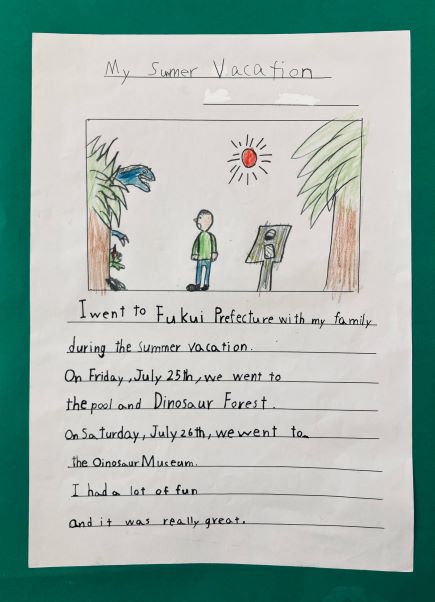 My Sumer Vacation
I went to Fukui Prefecture with my family
during the summer vacation.
On Friday, July 25th, we went to
the pool and Dinosaur Forest.
On Saturday, July 26th, we went to
the Oinosaur Museum.
I had a lot of fun
and it was really great.